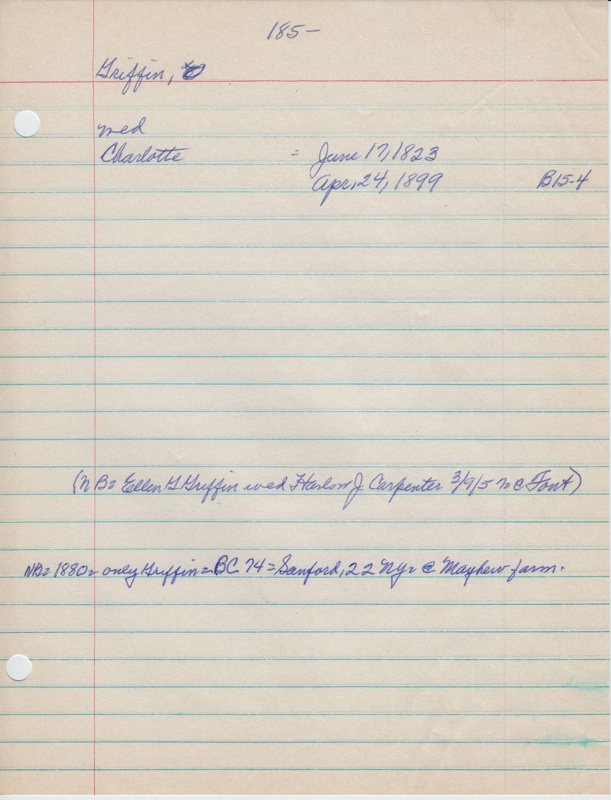 185-
Griffin,
wed
Charlotte = June 17, 1823
Apr. 24, 1899 B15-4
(NB= Ellen G Griffin wed Harlow J. Carpenter 3/9/57 @ Font)
NB= 1880= only Griffin= BC 74 = Sanford, 22 NY= @ Mayhew farm.